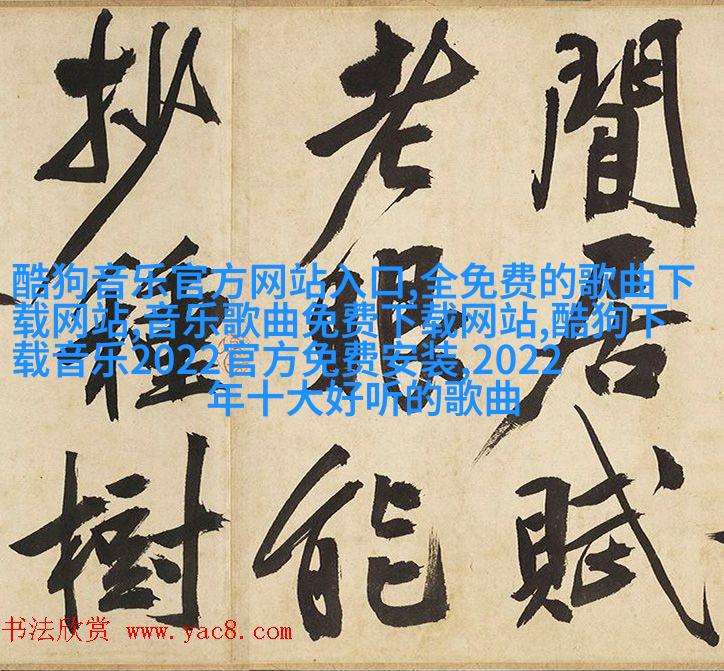 閒居賦
老暇能
抄種樹
酷狗音乐官方网站入口,全免费的歌曲下
载网站,音乐歌曲免费下载网站,酷狗下
载音乐2022官方免费安装,2022
年十大好听的歌曲
书法欣赏 www.yac8.com